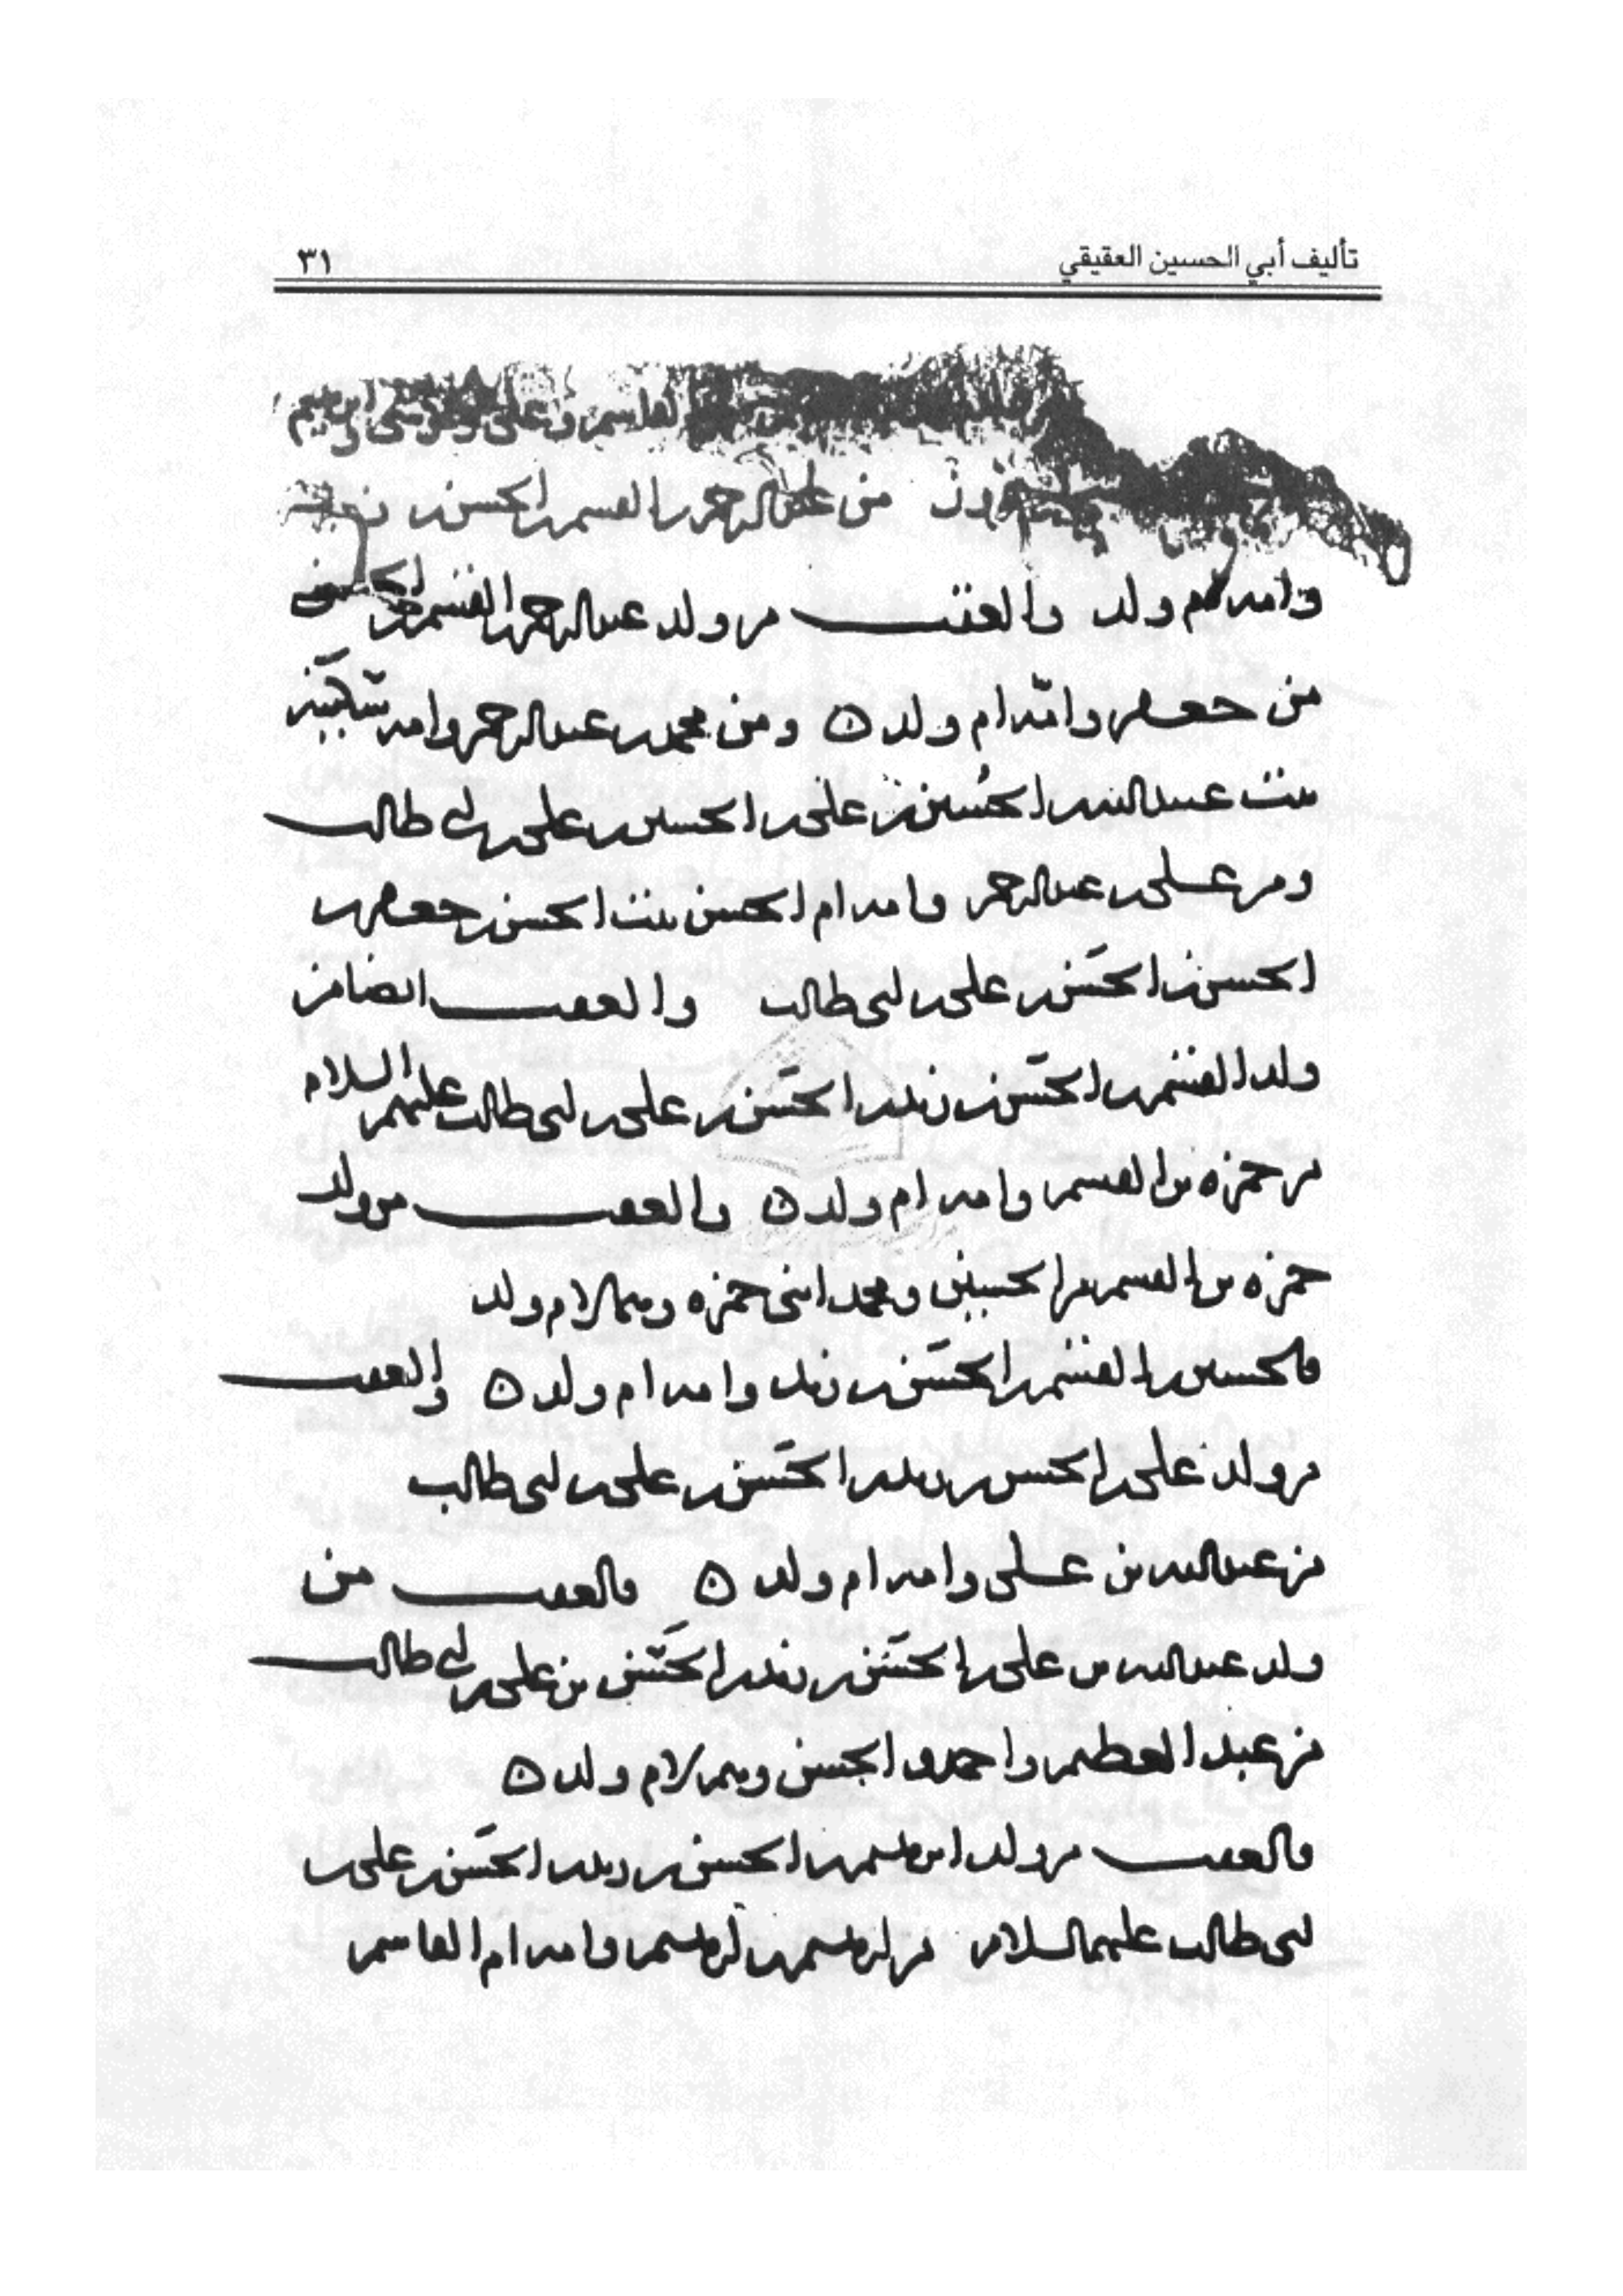 تأليف أبي الحسين العقيقي
٣١
القاسم وعلى وموسى وابرهيم
من عبد الرحمن بن القسم بن الحسن بن زيد
وامه ام ولد والعقب من ولد عبد الرحمن بن القسم بن الحسن
من جعفر وامّه ام ولد ٥ ومن محمد بن عبد الرحمن وامه سكينة
بنت عبد الله بن الحُسين بن على بن الحسين بن على بن ابى طالب
ومن على بن عبد الرحمن وامه ام الحسن بنت الحسن بن جعفر بن
الحسن بن الحَسَن بن على بن ابى طالب والعقب ايضا من
ولد القسم بن الحَسَن بن زيد بن الحَسَن بن على بن ابى طالب عليهم السلام
من حمزه بن القسم وامه ام ولد ٥ والعقب من ولد
حمزه بن القسم من الحسين ومحمد ابنى حمزه وهما لام ولد
فالحسين بن القسم بن الحَسَن بن زيد وامه ام ولد ٥ والعقب
من ولد على بن الحسن بن زيد بن الحَسَن بن على بن ابى طالب
من عبد الله بن على وامه ام ولد ٥ فالعقب من
ولد عبد الله بن على بن الحَسَن بن زيد بن الحَسَن بن على بن ابى طالب
من عبد العظيم واحمد والحسن وهم لام ولد ٥
فالعقب من ولد ابرهيم بن الحسن بن زيد بن الحَسَن بن على بن
ابى طالب عليهما السلام من ابرهيم بن ابرهيم وامه ام القاسم